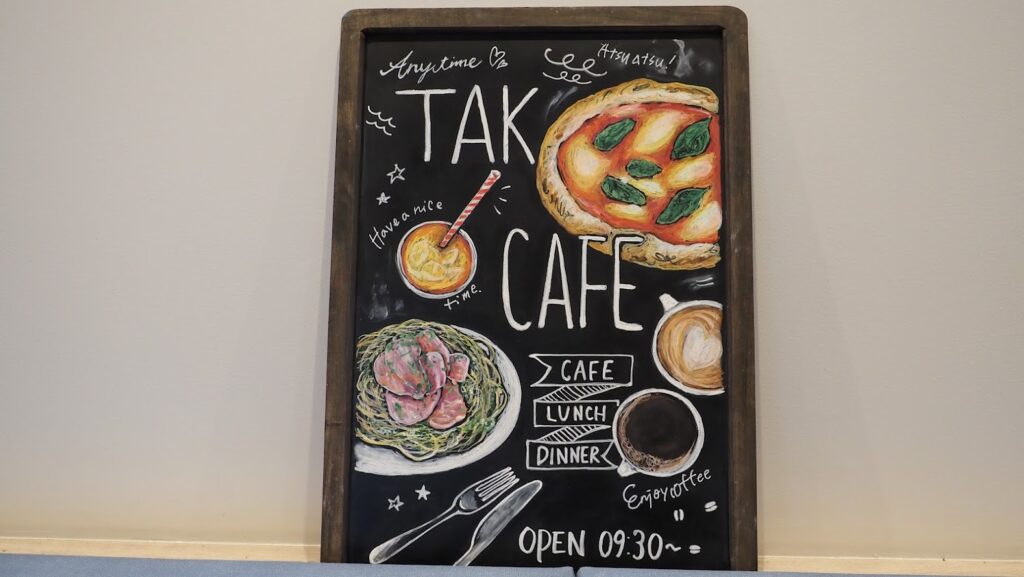 Anytime
Atsuatsu!
TAK
Have a nice
time.
CAFE
CAFE
LUNCH
DINNER
Enjoy coffee
OPEN 09:30~